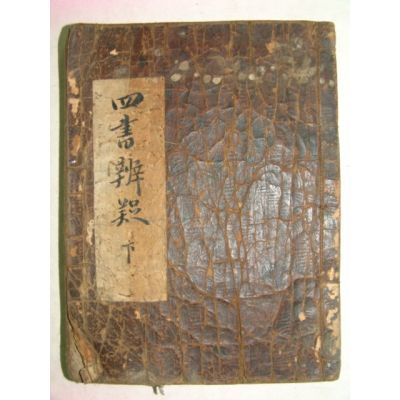 四書辨疑 下